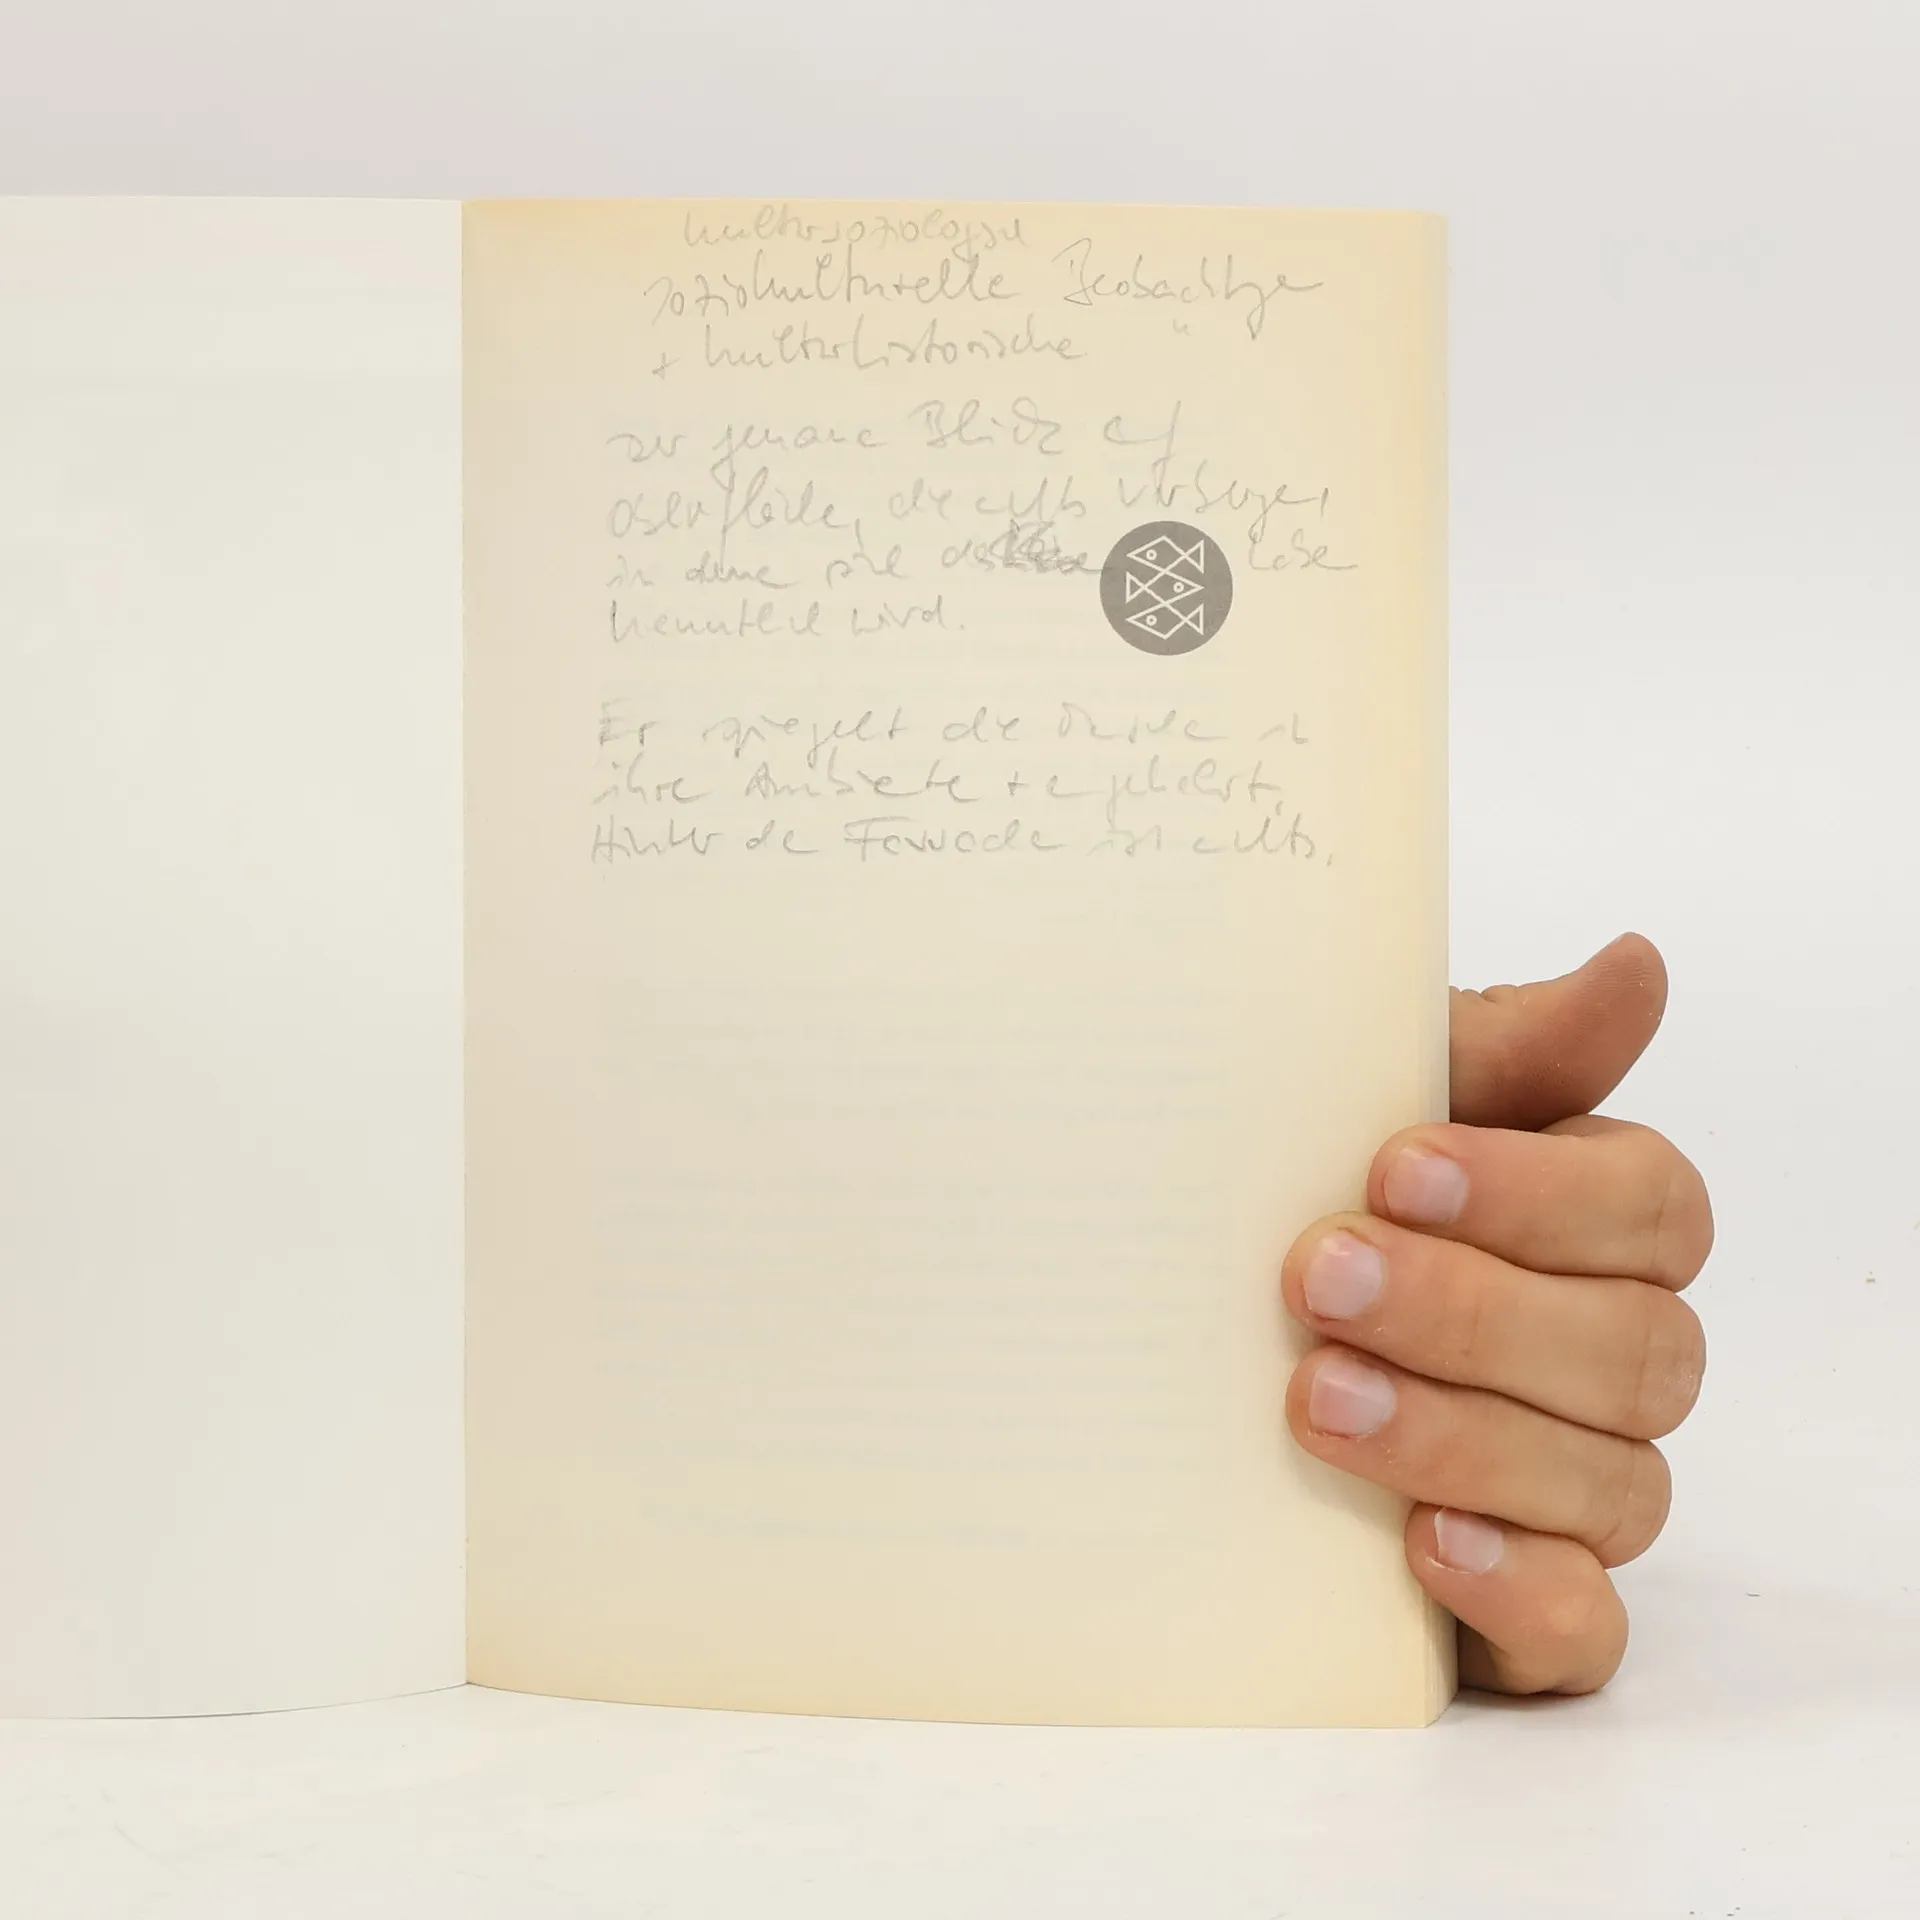 kultursoziologie
soziokulturelle Beobachtunge
+ kulturhistorische "
der genaue Blick auf
Oberfläche, die nichts verberge,
in dene sich das Lebe
kenntlich wird.
Er spiegelt die in
ihre Ambiete + umgekehrt.
Hinter de Fassade ist nichts.